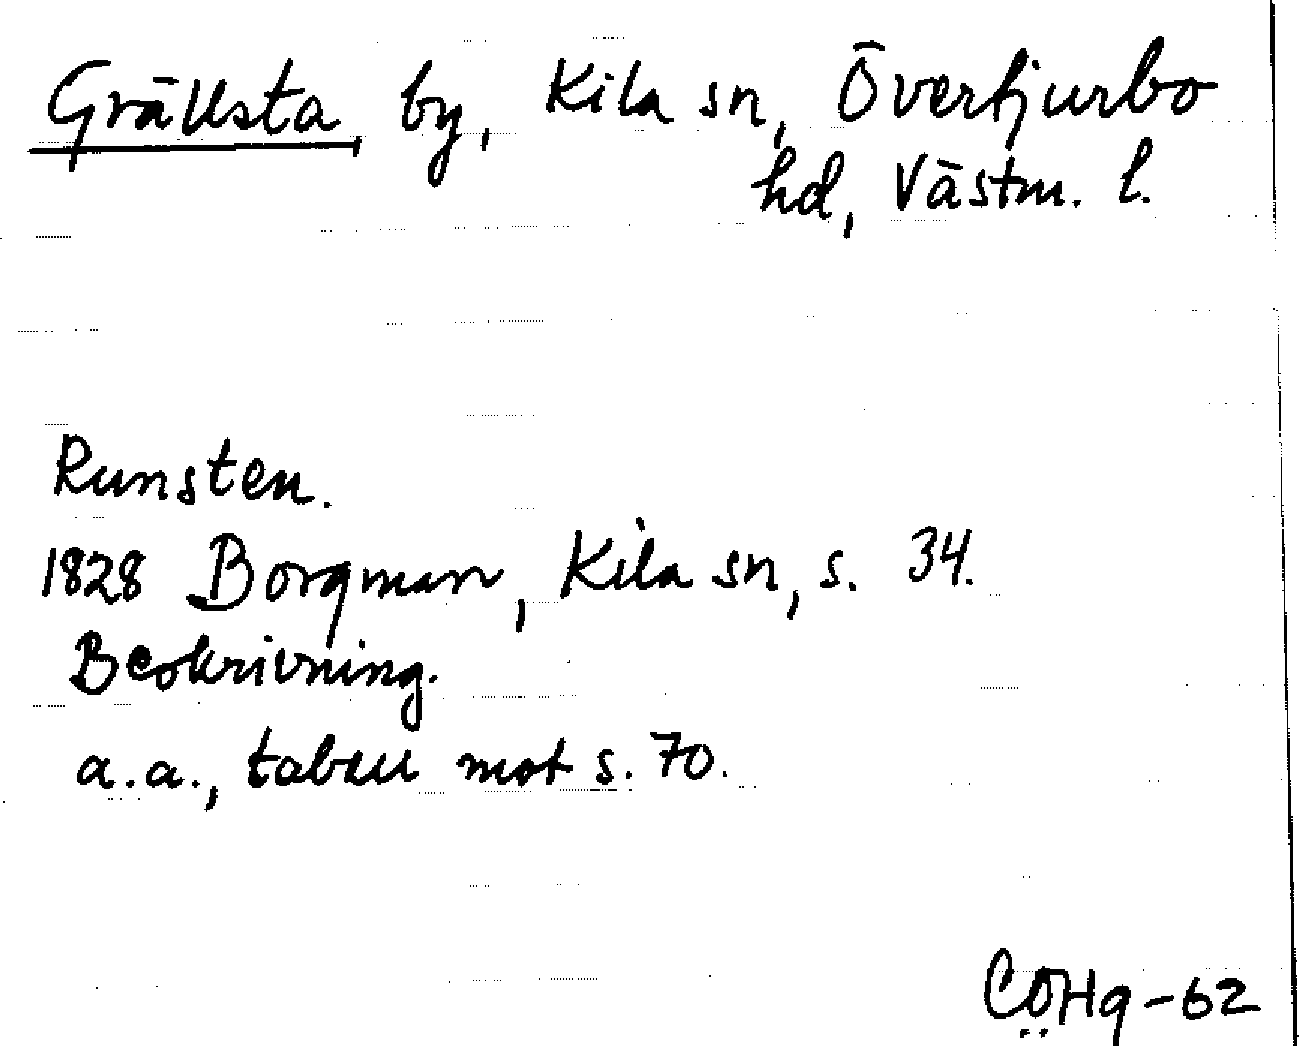 Grällsta, by, Kila sn, Övertjurbo
hd, Västm. l.
Runsten.
1828 Borgman, Kila sn, s. 34.
Beskrivning.
a.a., tabell mot s. 70.
CÖHg-62